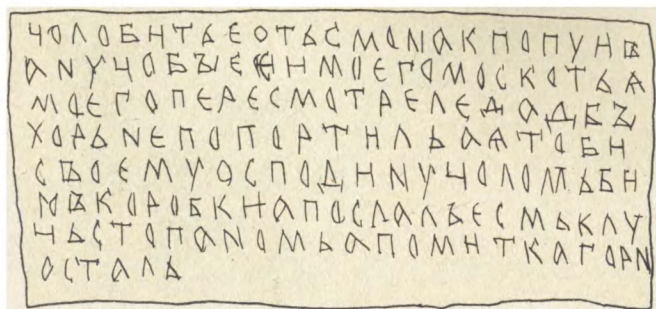 ЧОЛОБИТЬЕОТЬСМОНАКПОПУИВ
АНУЧОБЫЕСИМОЕГОМОСКОТЬѦ
МОЕГОПЕРЕСМОТРЕЛЕДАДБЪ
ХОРЬНЕПОПОРТИЛЬАѦТОБИ
СВОЕМУОСПОДИНУЧОЛОМЬБИ
МВКОРОБКИАПОСЛАЛЪЕСМЬКЛУ
ЧЬСТОПАНОМЬАПОМИТКАГОРН
ОСТАЛЬ